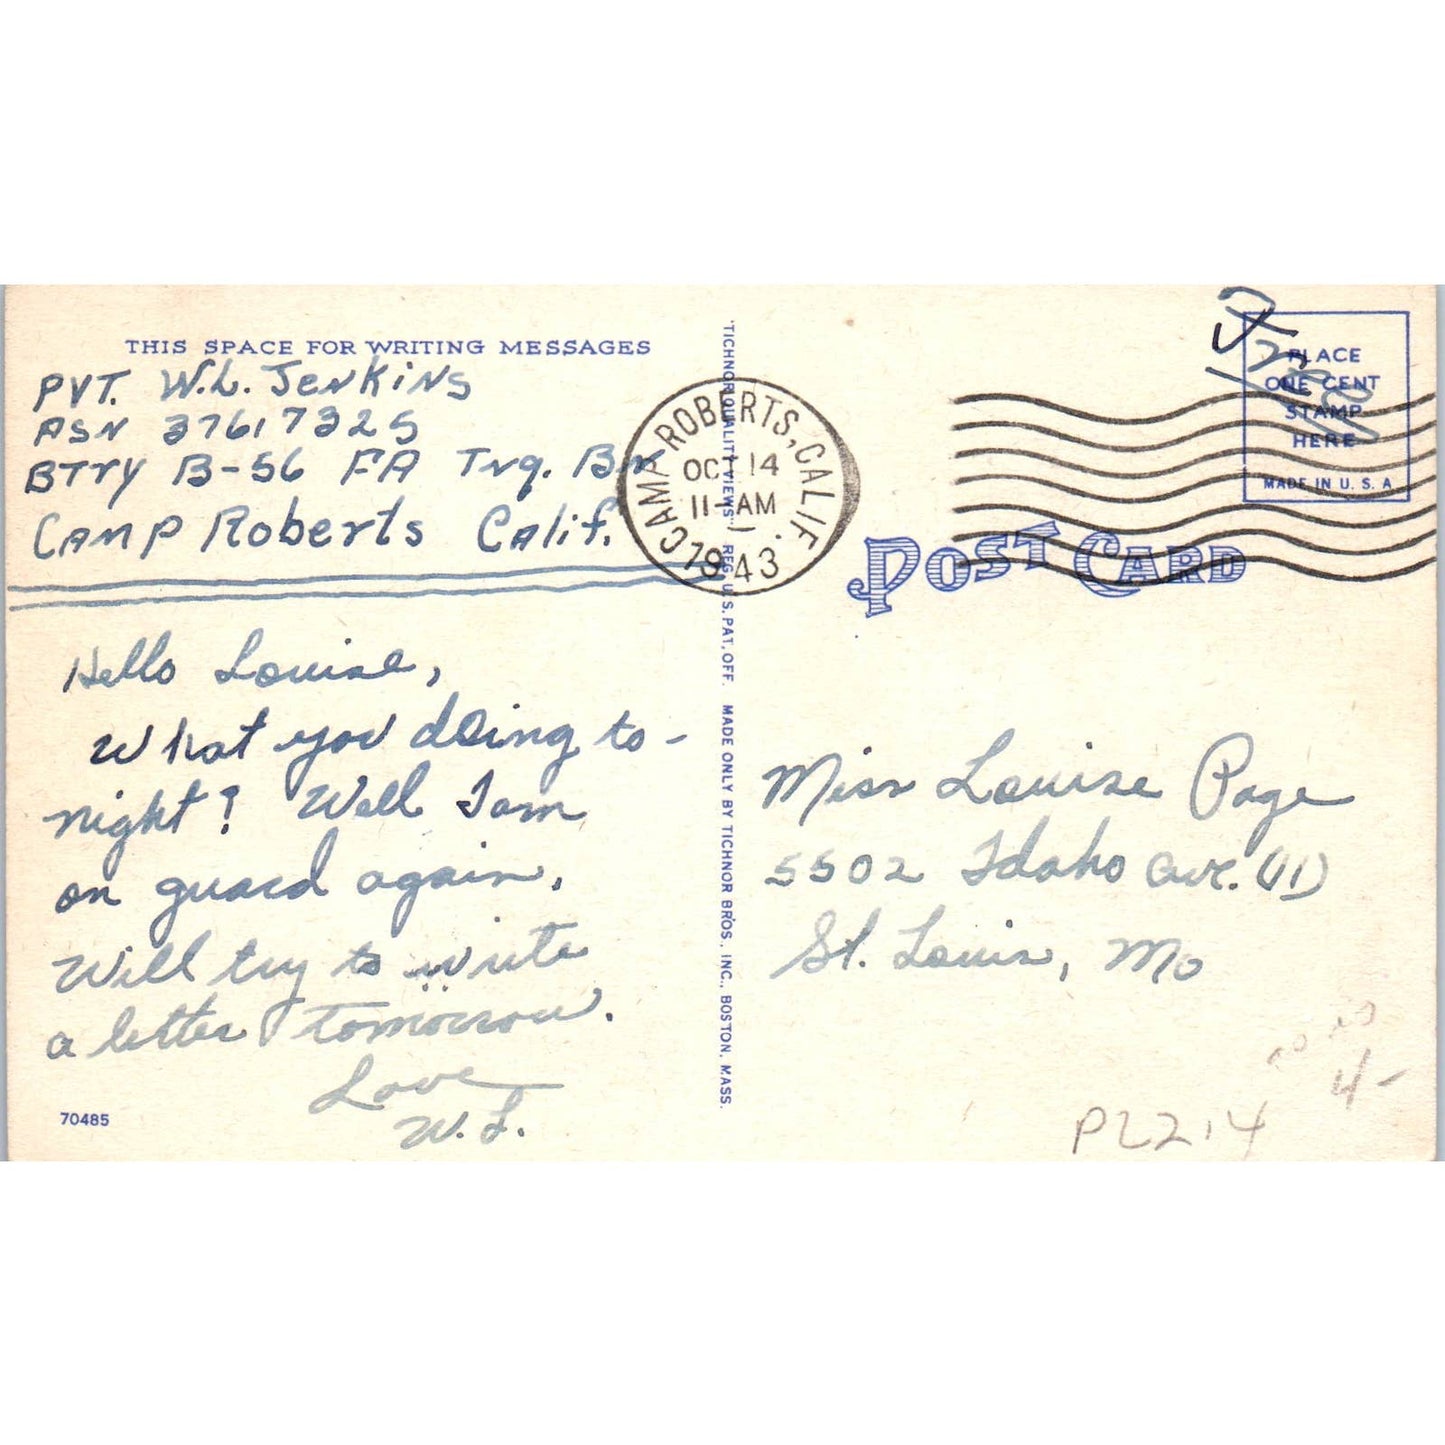 THIS SPACE FOR WRITING MESSAGES
PVT. W.L. JENKINS
ASN 37617325
BTRY B-56 FA TNG. BN
CAMP Roberts CALif.
Hello Louise,
What you doing to-
night? Well I am
on guard again.
Will try to write
a letter tomorrow.
Love
W. L.
70485
"TICHNOR QUALITY VIEWS" REG. U.S. PAT. OFF. MADE ONLY BY TICHNOR BROS., INC., BOSTON, MASS.
CAMP ROBERTS, CALIF.
OCT 14
11-AM
1943
Free
PLACE
ONE CENT
STAMP
HERE
MADE IN U. S. A
POST CARD
Miss Louise Page
5502 Idaho Ave. (11)
St. Louis, Mo
4-
P2214